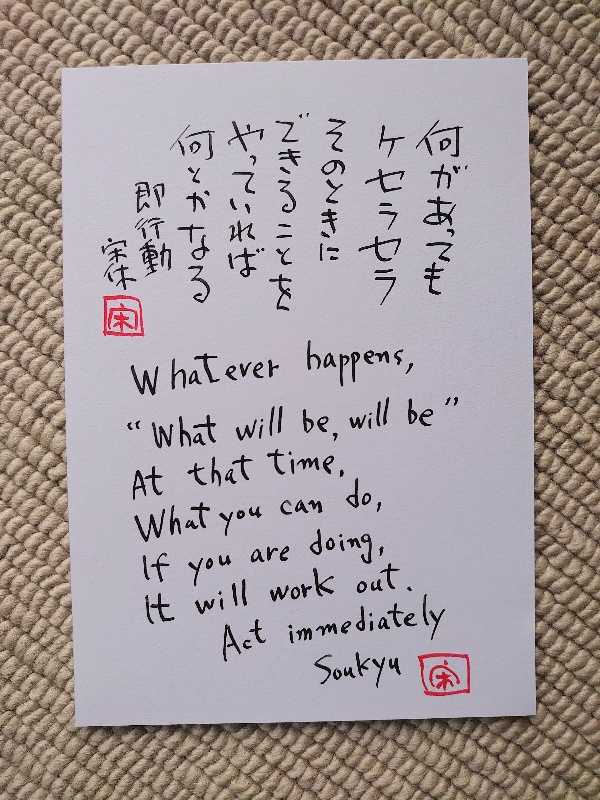 何があっても
ケセラセラ
そのときに
できることを
やっていれば
何とかなる
即行動
宋休
宋
Whatever happens,
“What will be, will be”
At that time,
What you can do,
If you are doing,
It will work out.
Act immediately
Soukyu
宋